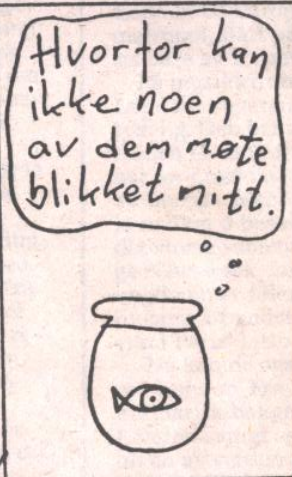 Hvorfor kan
ikke noen
av dem møte
blikket mitt.